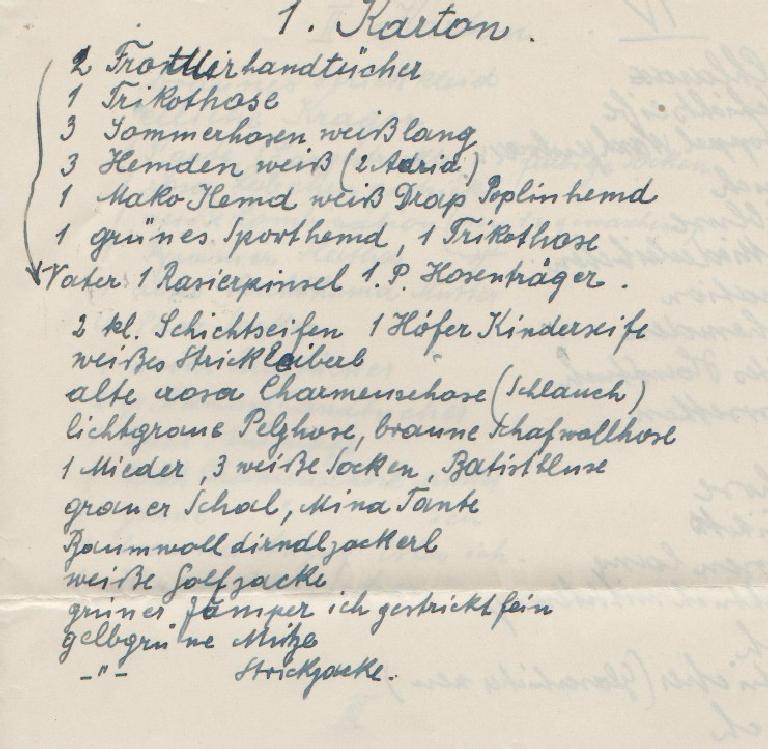 1. Karton.
2 Frottierhandtücher
1 Trikothose
3 Sommerhosen weiß lang
3 Hemden weiß (2 Adria.)
1 Mako Hemd weiß Drap Poplinhemd
1 grünes Sporthemd, 1 Trikothose
Vater 1 Rasierpinsel 1. P. Hosenträger.
2 kl. Schichtseifen 1 Hofer Kinderseife
weißes Strickleiberl
alte rosa Charmeusehose (Schlauch)
lichtgraue Pelzhose, braune Schafwollhose
1 Mieder, 3 weiße Socken, Batistbluse
grauer Schal, Mina Tante
Baumwolldirndljackerl
weiße Golfjacke
grüner Jumper ich gestrickt fein
gelbgrüne Mütze
-"- Strickjacke.